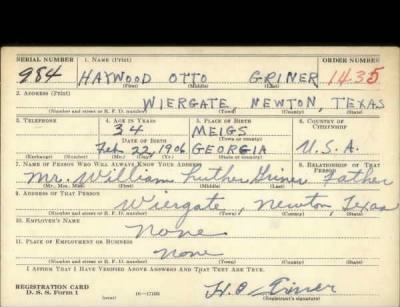 SERIAL NUMBER 1. NAME (Print) ORDER NUMBER
984 HAYWOOD OTTO GRINER 1435
(First) (Middle) (Last)
2. ADDRESS (Print)
WIERGATE, NEWTON, TEXAS
(Number and street or R. F. D. number) (Town) (County) (State)
3. TELEPHONE 4. AGE IN YEARS 5. PLACE OF BIRTH 6. COUNTRY OF CITIZENSHIP
34 MEIGS
DATE OF BIRTH (Town or county)
Feb 22, 1906 GEORGIA U.S.A.
(Exchange) (Number) (Mo.) (Day) (Yr.) (State or country)
7. NAME OF PERSON WHO WILL ALWAYS KNOW YOUR ADDRESS 8. RELATIONSHIP OF THAT PERSON
Mr. William Luther Griner Father
(Mr., Mrs., Miss) (First) (Middle) (Last)
9. ADDRESS OF THAT PERSON
Wiergate, Newton, Texas
(Number and street or R. F. D. number) (Town) (County) (State)
10. EMPLOYER'S NAME
None
11. PLACE OF EMPLOYMENT OR BUSINESS
None
(Number and street or R. F. D. number) (Town) (County) (State)
I AFFIRM THAT I HAVE VERIFIED ABOVE ANSWERS AND THAT THEY ARE TRUE.
REGISTRATION CARD
D. S. S. Form 1 H.O. Griner
(Registrant's signature)